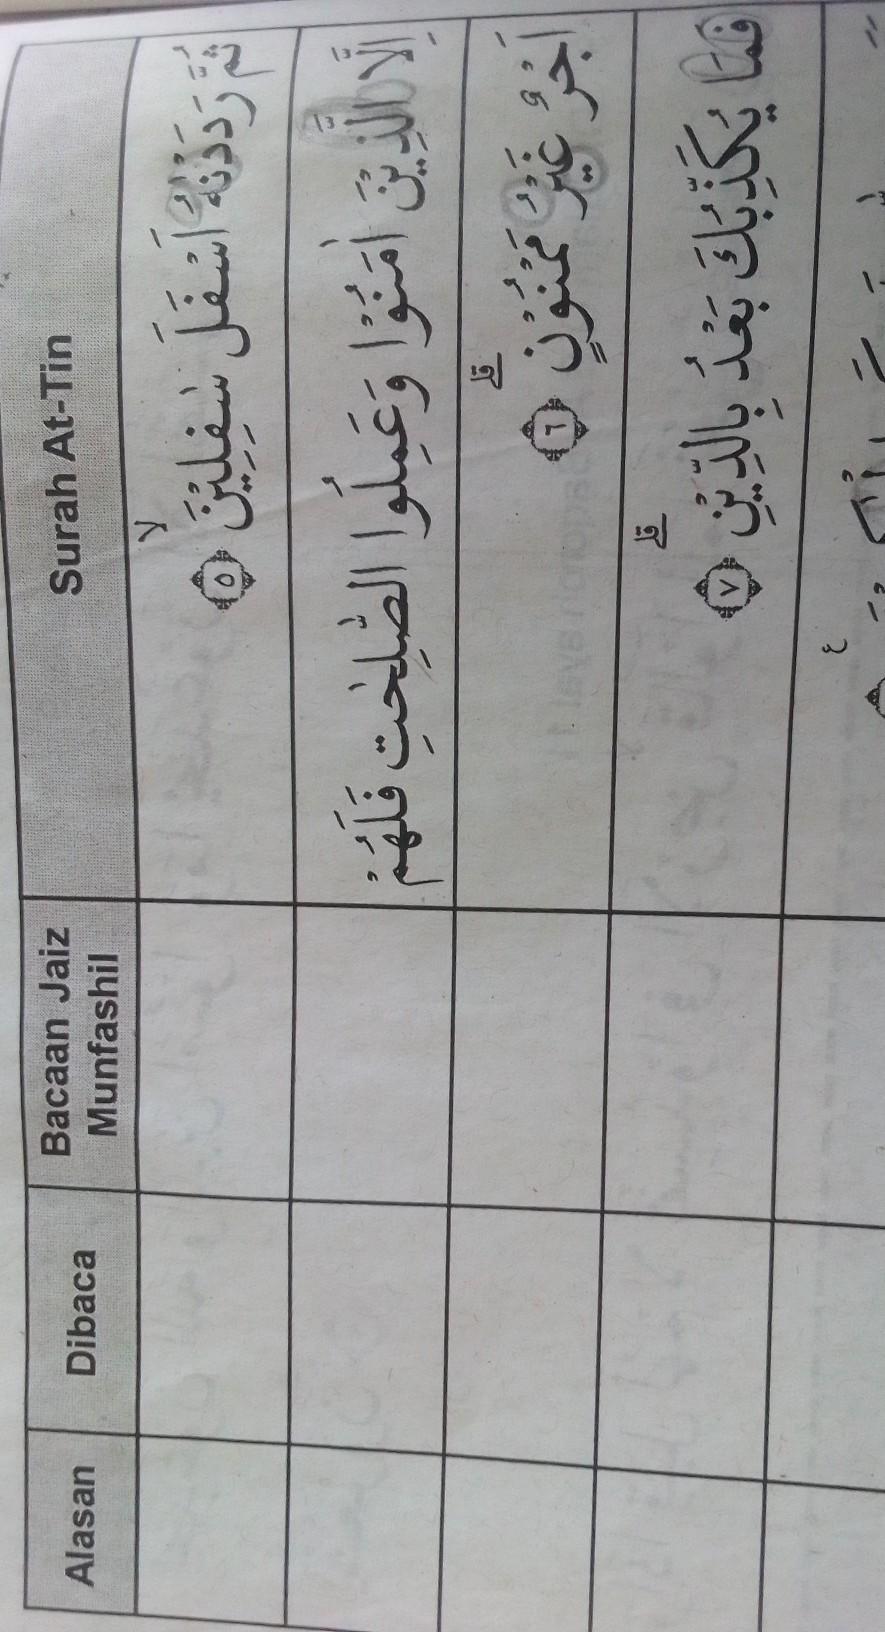 Surah At-Tin
Bacaan Jaiz Munfashil
Dibaca
Alasan
ثُمَّ رَدَدْنٰهُ اَسْفَلَ سٰفِلِيْنَ ۙ ۝٥
اِلَّا الَّذِيْنَ اٰمَنُوْا وَعَمِلُوا الصّٰلِحٰتِ فَلَهُمْ
اَجْرٌ غَيْرُ مَمْنُوْنٍ ۗ ۝٦
فَمَا يُكَذِّبُكَ بَعْدُ بِالدِّيْنِ ۗ ۝٧